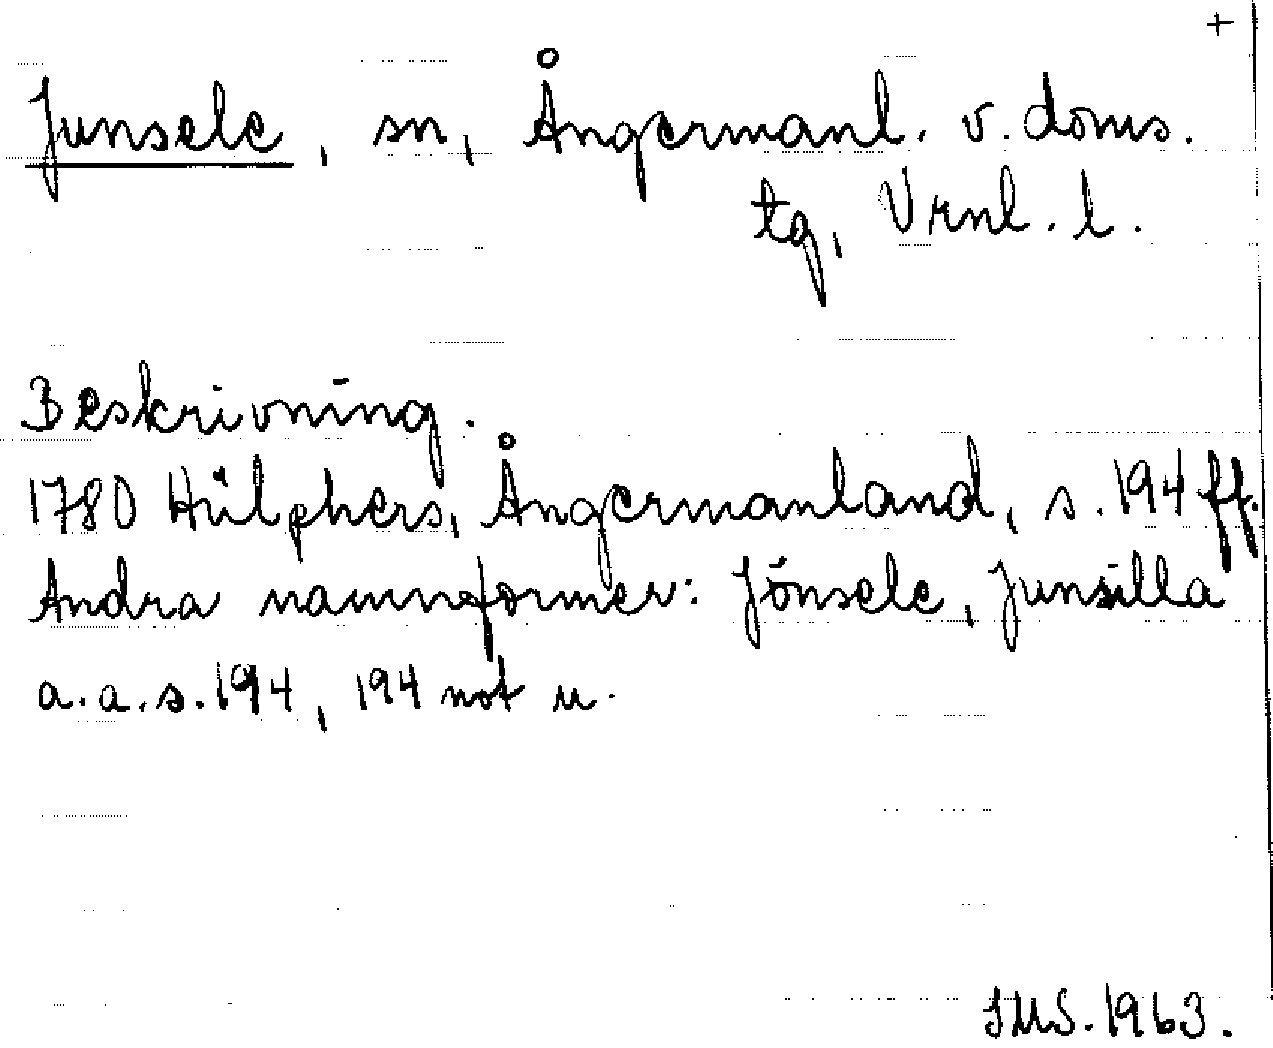 +
Junsele, sn, Ångermanl. v. doms.
tg, Vrnl. l.
Beskrivning.
1780 Hülphers, Ångermanland, s. 194 ff.
Andra namnformer: Jönsele, Junsilla
a. a. s. 194, 194 not u.
JMS. 1963.